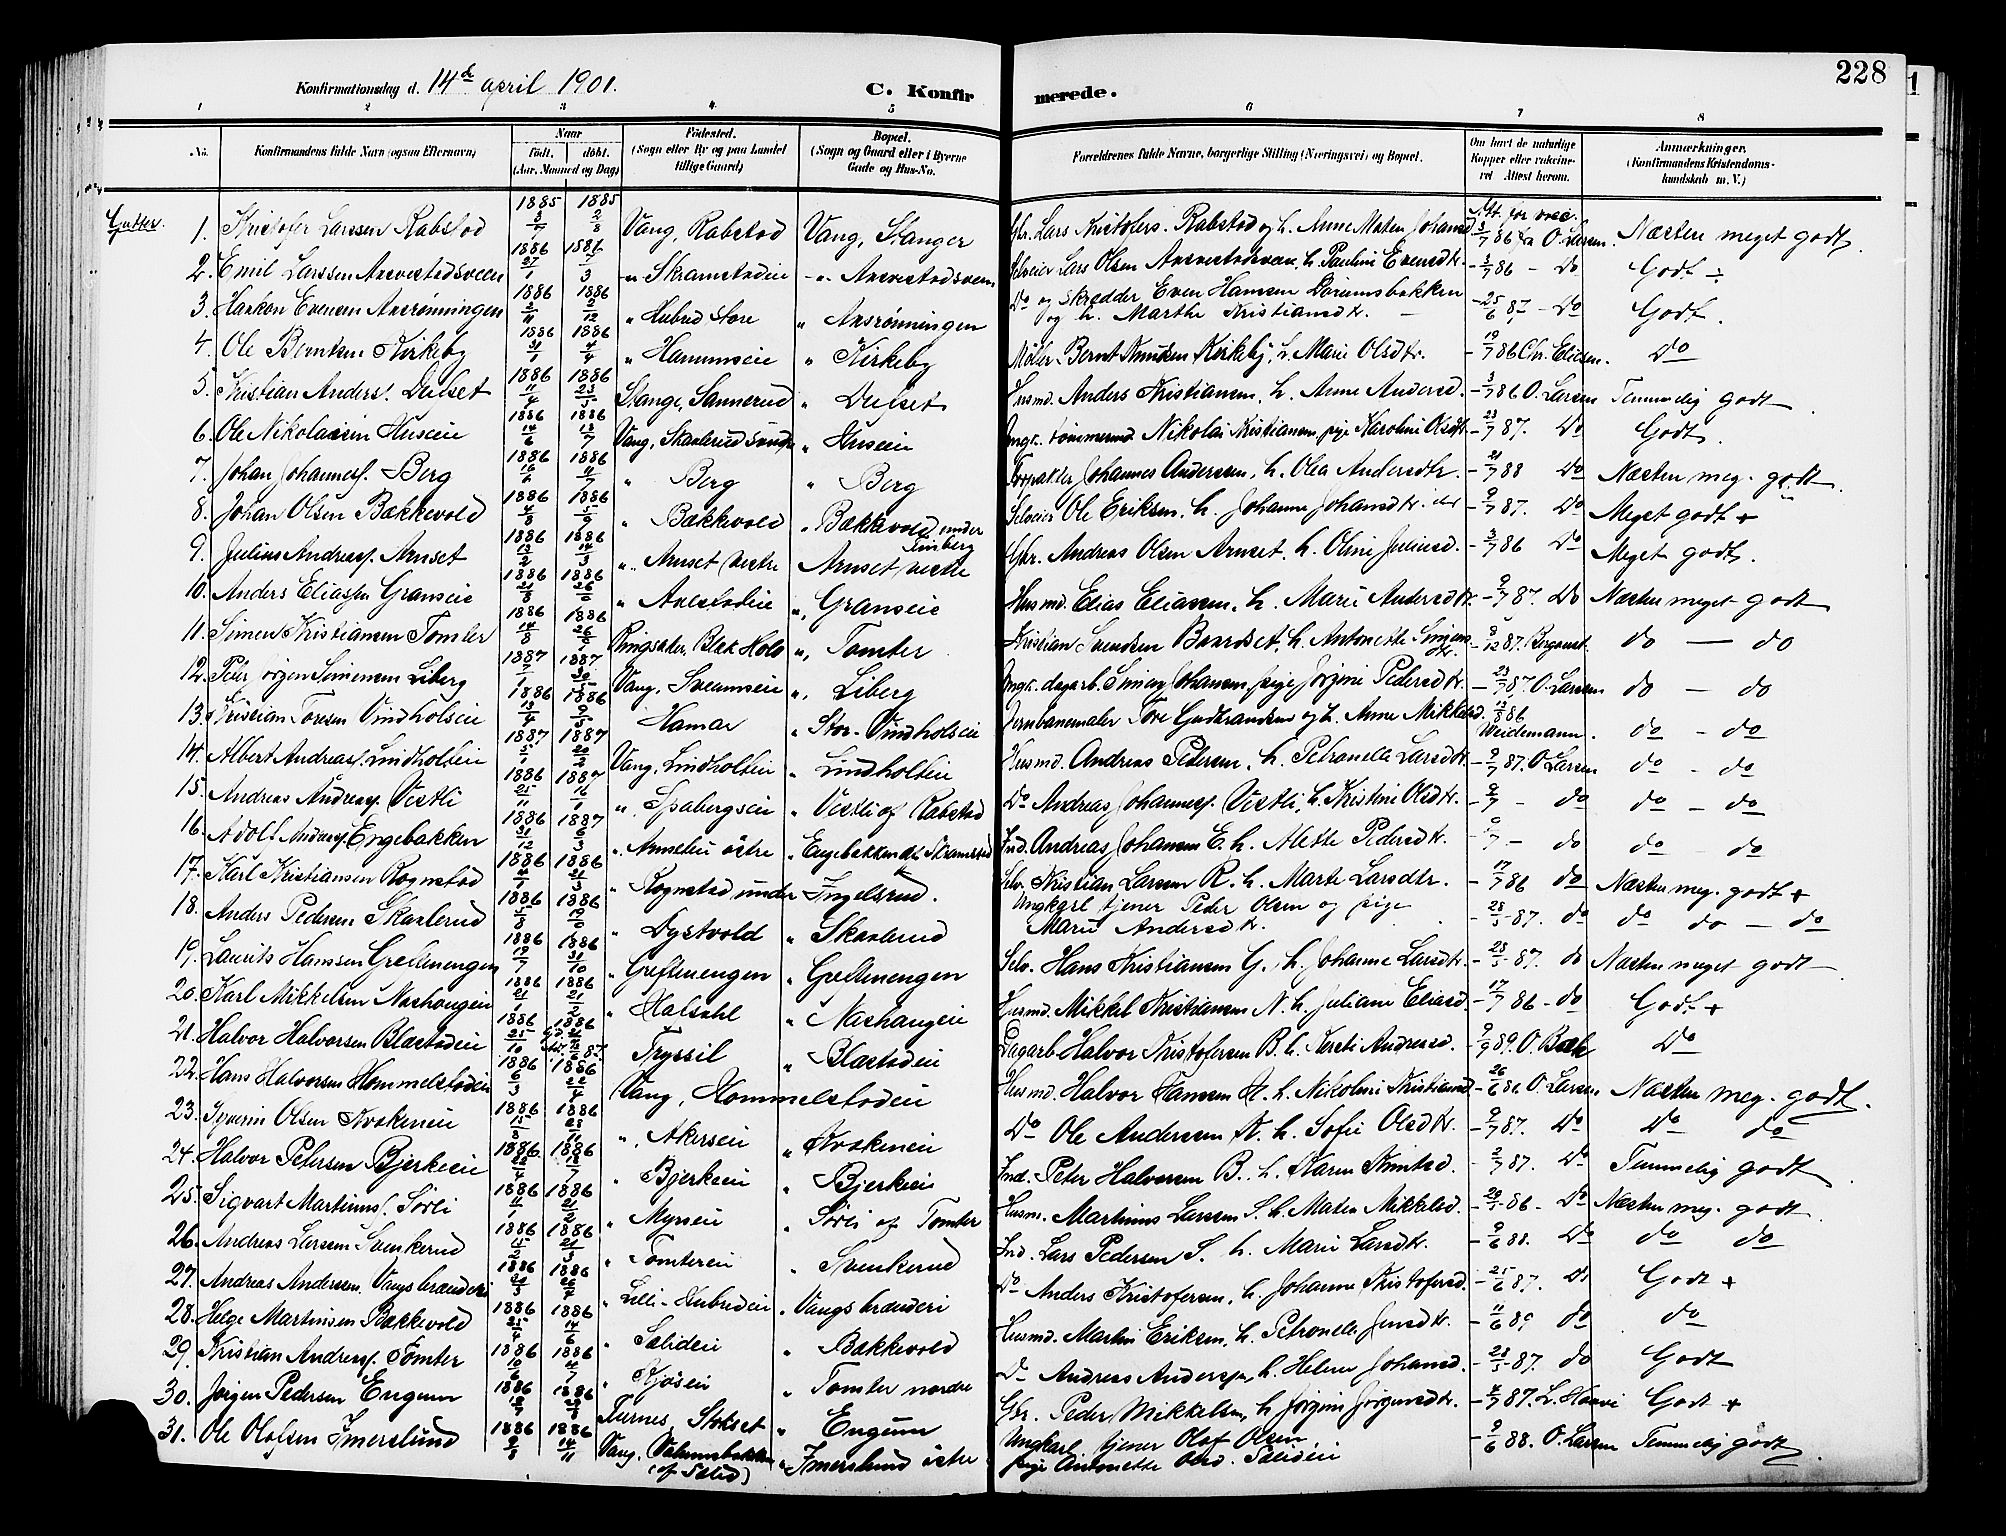 228
Konfirmationsdag d. 14de april 1901.
C. Konfirmerede.
1 2 3 4 5 6 7 8
No. Konfirmandens fulde Navn (ogsaa Efternavn) Naar født, døbt. (Aar, Maaned og Dag) Fødested. (Sogn eller By og paa Landet tillige Gaard) Bopæl. (Sogn og Gaard eller i Byerne Gade og Hus-No. Forældrenes fulde Navne, borgerlige Stilling (Næringsvei) og Bopæl. Om havt de naturlige Kopper eller vaksineret Attest herom. Anmærkninger. (Konfirmandens Kristendomskundskab m. V.)
Gutter.
1. Kristofer Larssen Rabstad 1885 1885 2/8 Vang, Rabstad Vang, Stanger Gbr. Lars Kristofers. Rabstad og h. Anne Maten Johansd. 3/7 86 fra O. Larsen. Næsten meget godt.
2. Emil Larssen 1886 27/1 Skramstadeie Selveier Lars Olsen h. Pauline Evensdtr. 3/7 86 - Do Godt ÷
3. Haakon Evensen 1886 1886 2/12 " Hubred store " Do og skrædder Even Hansen og h. Marthe Kristiansdtr. - 25/6 87 - Do Godt.
4. Ole Berntsen Kirkeby 1886 31/1 1886 4/4 " " Kirkeby Møller Bernt Knudsen Kirkeby, h. Marie Olsdtr. - 19/7 86 Chr. Eliesen. Do
5. Kristian Anders. Dælset 1886 11/4 1886 23/5 Stange, Sannerud " Dælset Husmd. Anders Kristiansen, h. Anne Andersd. - 3/7 86 O. Larsen Temmelig godt
6. Ole Nikolaisen Huseie 1886 14/6 1886 18/7 Vang, Skaalerud " Huseie Ungk. tømmermd. Nikolai Kristiansen, pige Karoline Olsdtr. - 23/7 87. Do Godt.
7. Johan Johannesf. Berg 1886 16/6 1886 11/7 " Berg " Berg Forpakter Johannes Anderssen, h. Olea Andersdtr. - 21/7 88 Do Næsten meg. godt
8. Johan Olsen Bækkevold 1886 4/8 1886 5/9 " Bækkevold " Bækkevold under Finberg Selveier Ole Eriksen, h. Johanne Johansdtr. - 9/7 87. Do Meget godt +
9. Julius Andreasf. Arnset 1886 13/2 1886 14/3 " Arnset vestre Arnset vestre Gbr. Andreas Olsen Arnset, h. Oline Juliusd. - 3/7 86 Do Meget godt.
10. Anders Eliassen Granseie 1886 21/8 1886 " " Granseie Husmd. Elias Eliassen, h. Marie Andersdtr. - 9/7 87. Do Næsten meget godt
11. Simen Kristiansen Tomter 1886 14/8 1886 Ringsaker, " Tomter Kristian Svendsen Baardset, h. Antonette Simensdtr. - 9/12 87. do — do
12. Peter Jørgen Simensen Liberg 1887 1887 Vang, " Liberg Ungk. dagarb. Simen Johansen, pige Jørgine Pedersdtr. - 23/7 87. O. Larssen do — do
13. Kristian Toresen Vindholseie 1886 13/4 1886 9/5 Hamar " Stor-Vindholseie Jernbanemaler Tore Gudbrandsen og h. Anne Mikkelsd. 13/8 86 Weidemann. do - do
14. Albert Andreasf. Lindholteie 1887 5/1 1887 20/2 Vang, Lindholteie " Lindholteie Husmd. Andreas Pedersen, h. Petronelle Larsdtr. - 9/7 87. O. Larsen do - do
15. Andreas Andreasf. Vestli 1886 25/11 1887 16/1 " Spabergseie " Vestli af Rabstad Do Andreas Johannesf. Vestli, h. Kristine Olsdtr. - 9/7 - do do - do
16. Adolf Andreasf. Engebakken 1886 31/12 1887 6/3 " østre " Engebakken Ind. Andreas Johansen E. h. Alette Pedersdtr. - 9/7 - do do - do
17. Karl Kristiansen Rognstad 1886 1886 21/3 " Rognstad under Ingelsrud. Selv. Kristian Larsen R. h. Marte Larsdtr. - 17/7 86 do Næsten meg. godt +
18. Anders Pedersen Skaalerud 1886 5/8 1886 " Dystvold " Skaalerud Ungkarl tjener Peder Olsen og pige Marie Andersdtr. - 28/5 - 87. do do do — do
19. Laurits Hanssen Greftenengen 1886 1886 31/10 " Greftenengen " Greftenengen Selv. Hans Kristiansen G., h. Johanne Larsdtr. - 28/5 - 87. do Næsten meget godt
20. Karl Mikkelsen Nashaugeie 1886 21/1 1886 21/2 " Halsahl " Nashaugeie Husmd. Mikkel Kristiansen N. h. Juliane Eliasd. - 17/7 86 - do Godt +
21. Halvor Halvorsen Blæstadeie 1886 25/10 1886 Tryssil " Blæstadeie Dagarb. Halvor Kristofersen B. h. Kersti Andreasd. - 9/9 89. O. Bæk Do
22. Hans Halvorsen Hommelstadeie 1886 6/3 1886 Vang, Hommelstadeie Husmd. Halvor Hanssen H. h. Nikoline Kristiansd. - 26/6 86 O. Larsen Næsten meg. godt.
23. Syverin Olsen 1886 15/8 1886 " Akerseie " Do Ole Anderssen K. h. Sofie Olsdtr. - 9/7 87. Do Do do
24. Halvor Petersen Bjerkeeie 1886 1886 18/7 " Bjerkeeie " Bjerkeeie Ind. Peter Halvorsen B. h. Karen Knutsd. - 2/7 87. Do Temmelig godt
25. Sigvart Martinus. Sørli 1886 1886 21/2 " Myrseie " Sørli af Tomter Husm. Martinus Larssen S. h. Maten Mikkelsd. - 29/5 - 86 - Do Næsten meg. godt
26. Andreas Larssen Svenkerud 1886 15/2 1886 21/3 " Tomtereie " Svenkerud Ind. Lars Pedersen S. h. Marie Larsdtr. - 9/6 88. Do do do
27. Andreas Anderssen Vangsbrænderi 1886 1886 " Lille-Hubredeie " Vangs brænderi Do Anders Kristofersen, h. Johanne Kristofersd. - 25/6 87. Do Godt +
28. Helge Martinsen Bækkevold 1886 25/4 1886 14/6 " Salideie " Bækkevold Husmd. Martin Eriksen, h. Petronelle Jensdtr. - 11/6 89 do do
29. Kristian Andreasf. Tomter 1886 10/6 1886 4/7 " " Tomter nordre Do Andreas Anderssen, h. Helene Johansd. - 28/5 - 87. do Godt
30. Jørgen Pedersen Engum 1886 18/7 1886 Furnes, Stokset " Engum Gbr. Peder Mikkelsen, h. Jørgine Jørgensdtr. - 87. L. Haave Godt +
31. Ole Olafsen Imerslund 1886 1886 14/11 Vang, (af Salid) " Imerslund østre Ungkarl tjener Olaf Olsen, pige Antonette Olsd. Salideie - 9/6 88. O. Larsen Temmelig godt